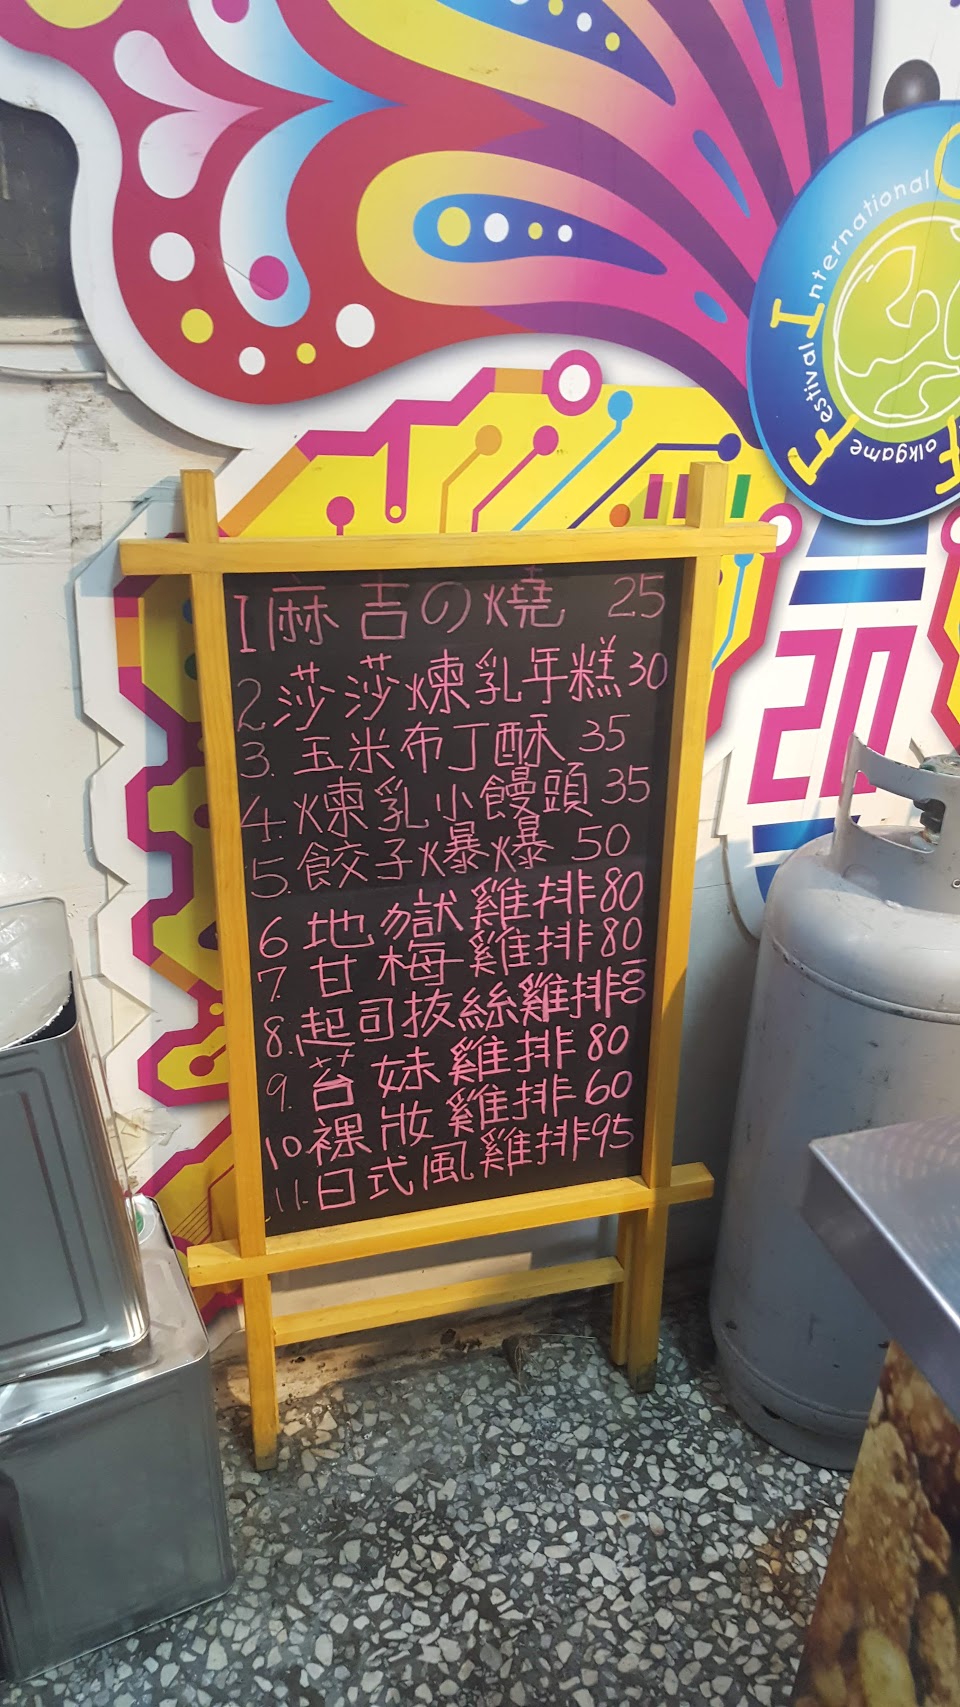 International
Festival
olkgame
20
1 麻吉の燒 25
2. 莎莎煉乳年糕 30
3. 玉米布丁酥 35
4. 煉乳小饅頭 35
5. 餃子爆爆 50
6 地獄雞排 80
7. 甘梅雞排 80
8. 起司拔絲雞排
9. 苔妹雞排 80
10 裸妝雞排 60
11. 日式風雞排 95